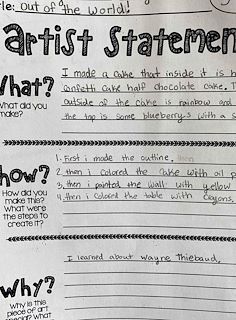 le: Out of the World!
Artist Statemen
What?
What did you
make?
I made a cake that inside it is h
confetti cake half chocolate cake. T
outside of the cake is rainbow and
the top is some blueberrys with a s
How?
How did you
make this?
What were
the steps to
create it?
1. First i made the outline,
2. then i colored the cake with oil p
3. then i painted the wall with yellow
4. then i colored the table with crayons.
Why?
Why is this
piece of art
special? What
I learned about Wayne Thiebaud.